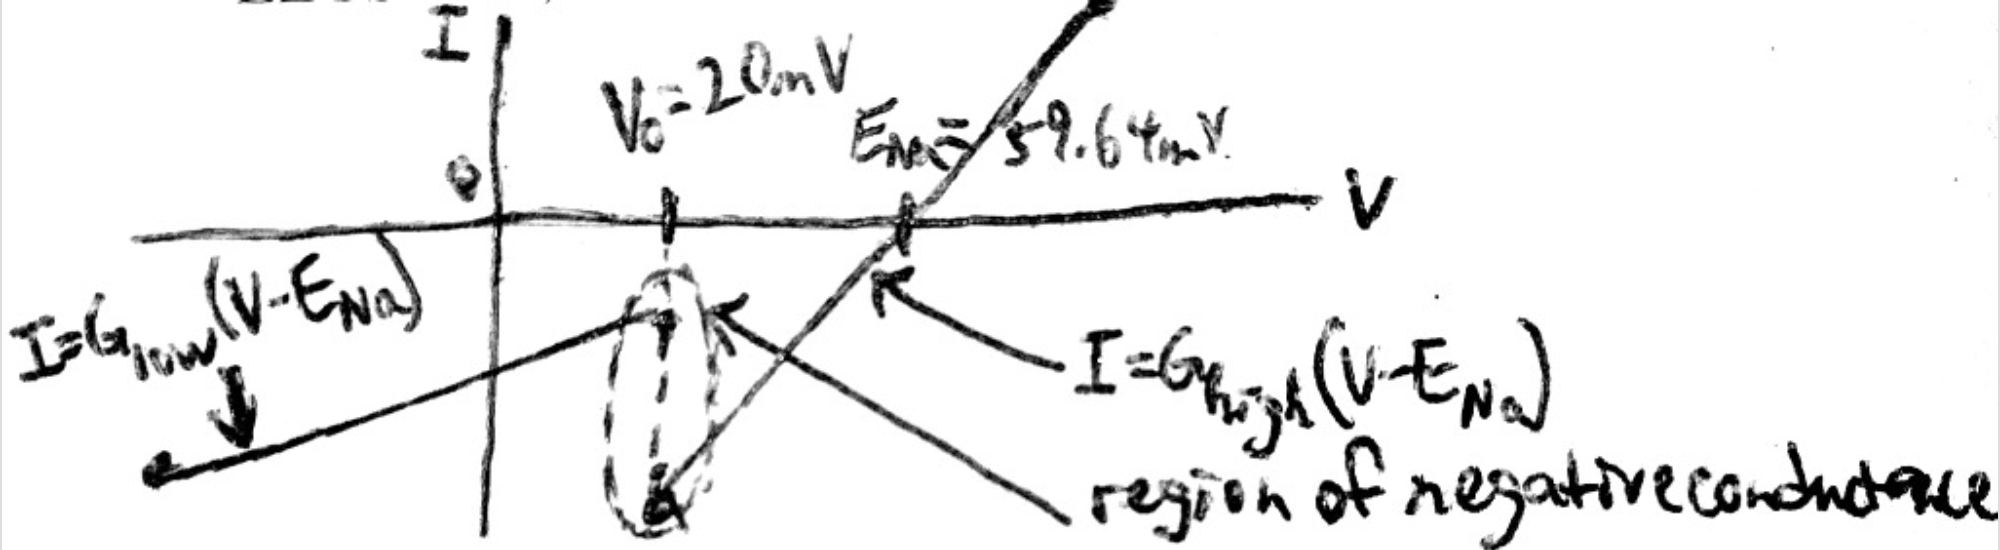 I
V₀=20mV
E_Na=59.64mV
0
V
I=G_low(V-E_Na)
I=G_high(V-E_Na)
region of negative conductance